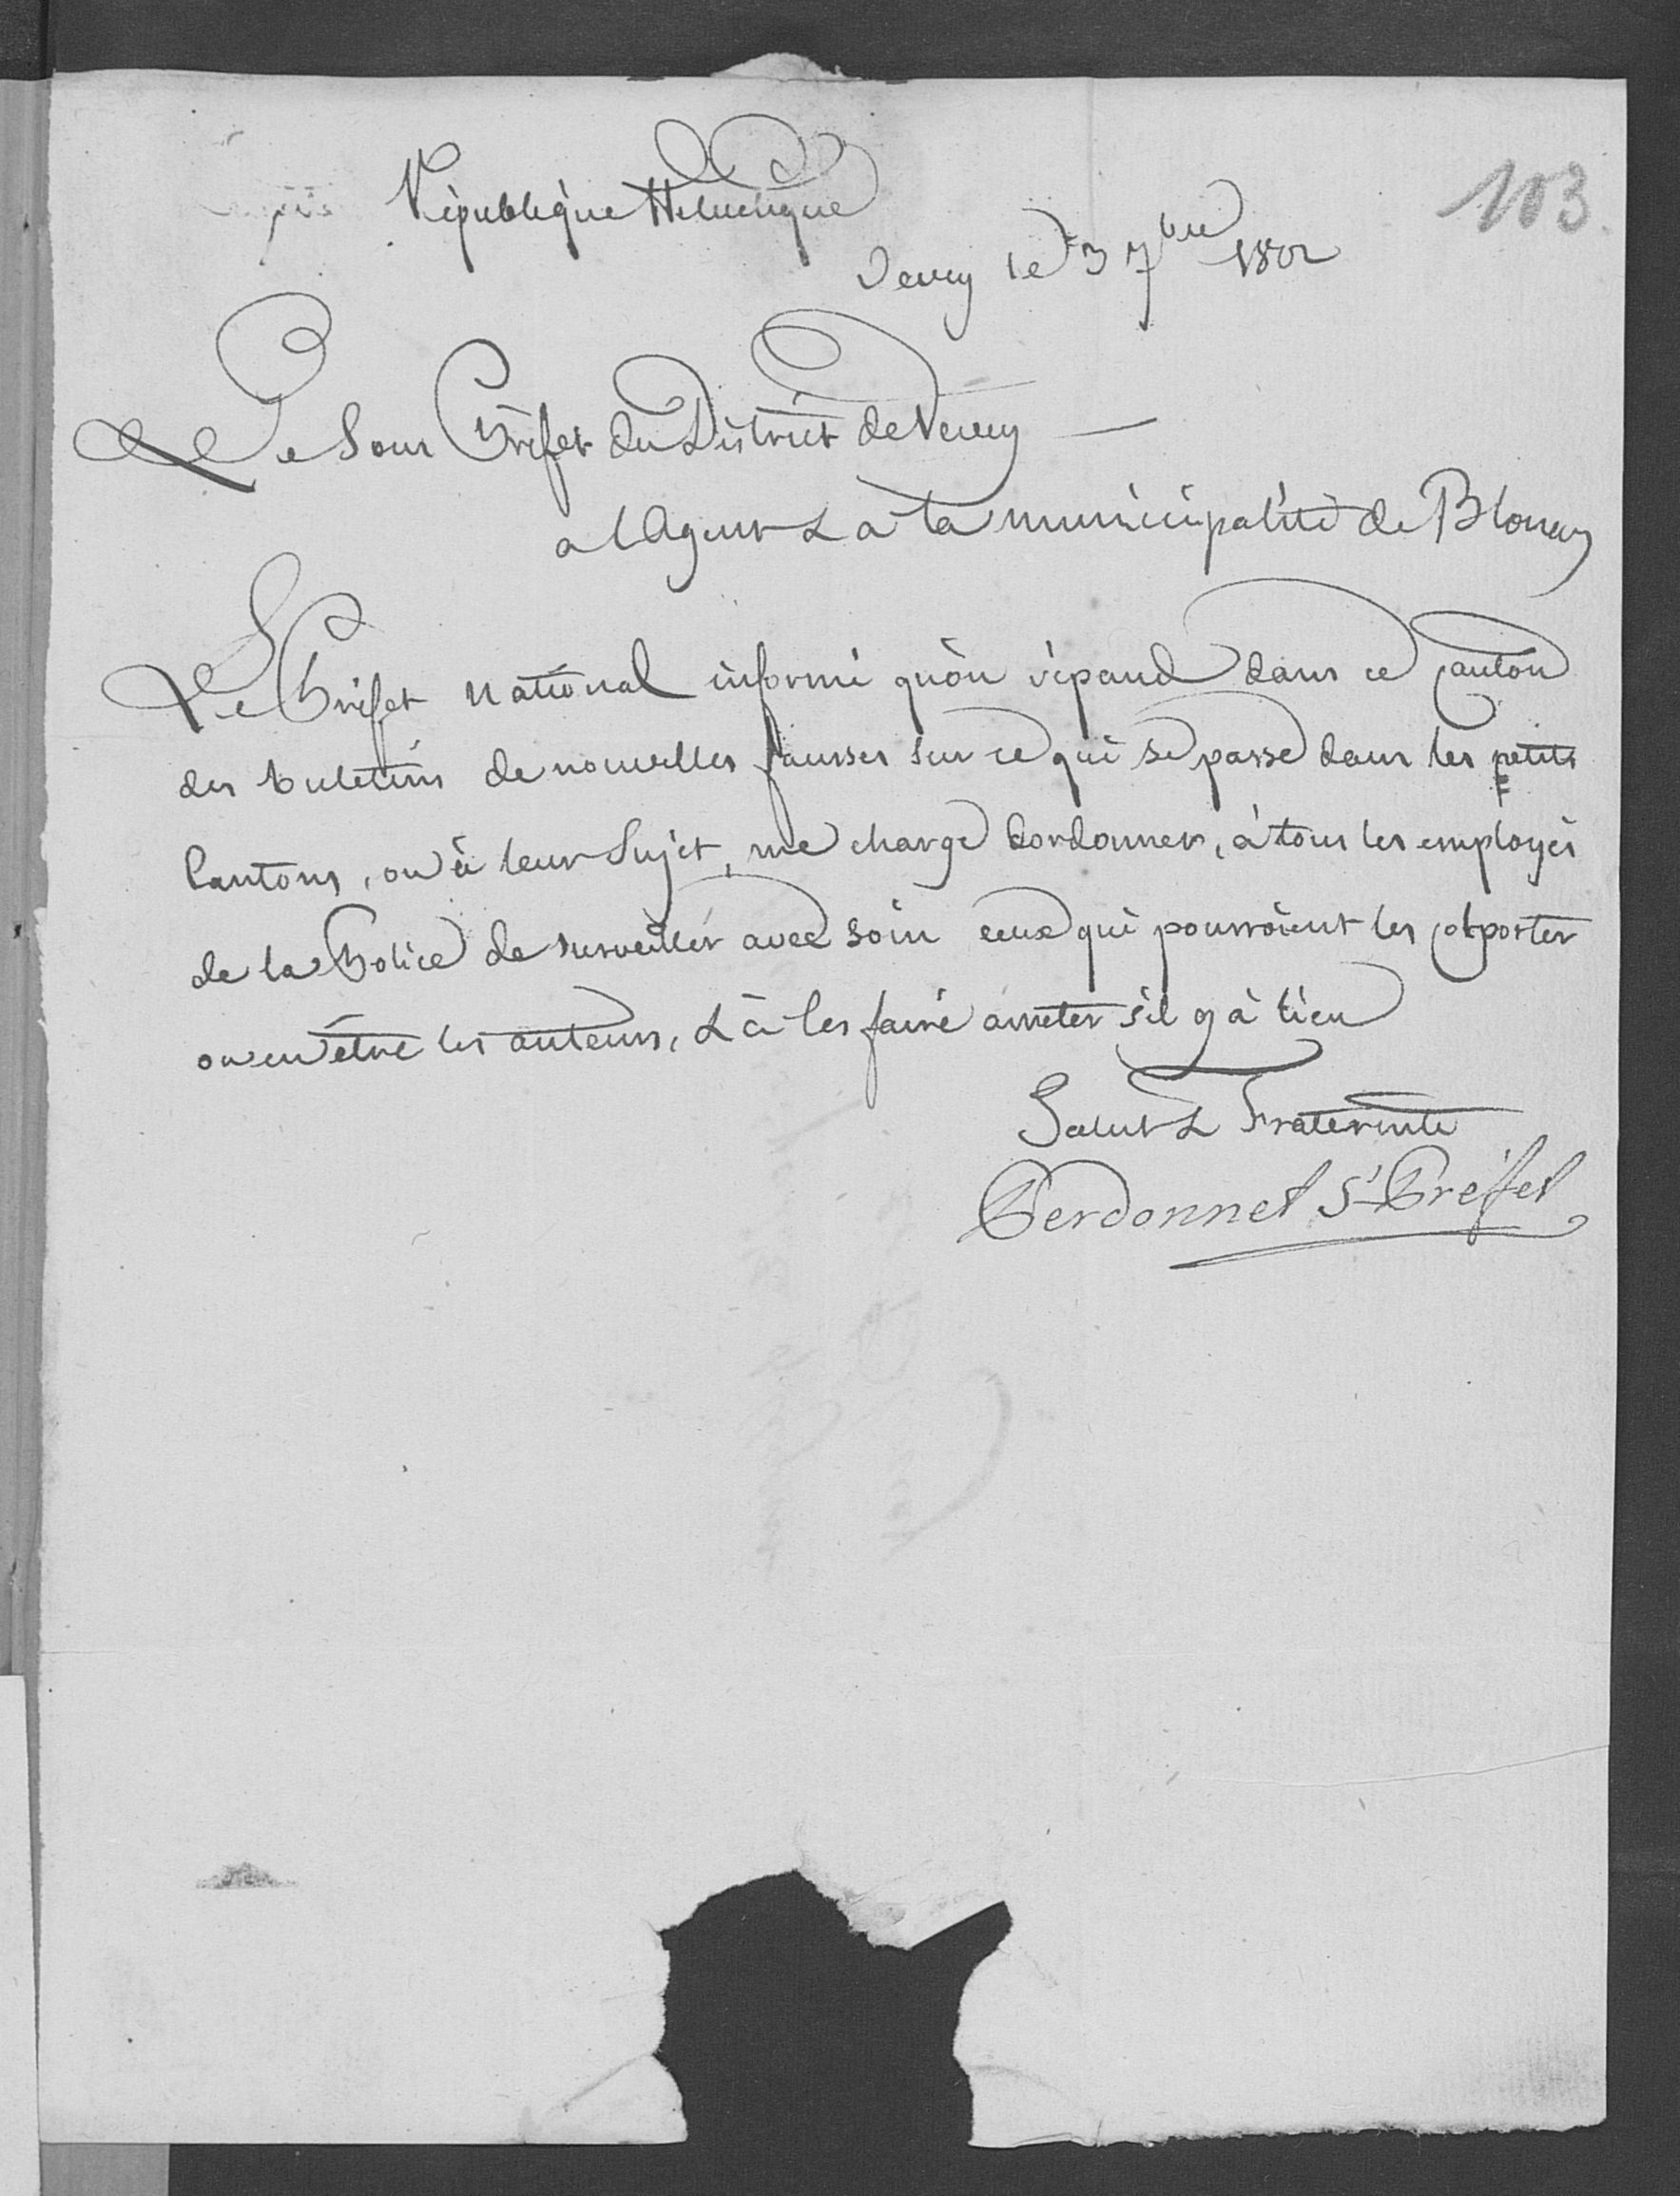 103
République Helvetique
Vevey le 3 7bre 1802
Le Sous Préfet du District de Vevey
a l'Agent & a la municipalité de Blonay
Le Préfet National informé qu'on répand dans ce Canton
des buletins de nouvelles fausses sur ce qui se passe dans les petits
Cantons, ou à leur Sujet, me charge dordonner, à tous les employés
de la Police de surveiller avec soin ceux qui pourroient les colporter
ou en être les auteurs, & à les faire arreter s'il y à lieu
Salut & Fraternité
Perdonnet St Préfet